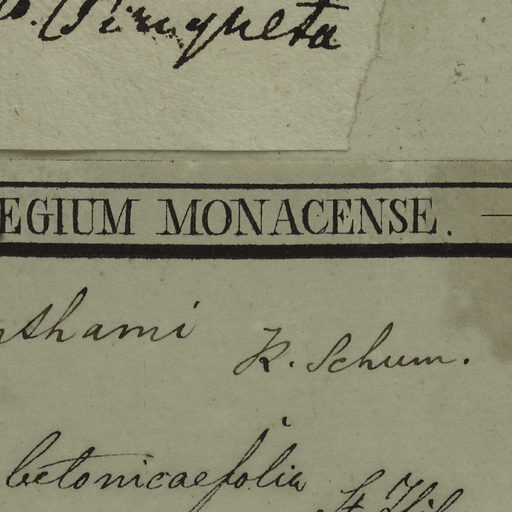 EGIUM MONACENSE.
thami K. Schum.
betonicaefolia St. Hil